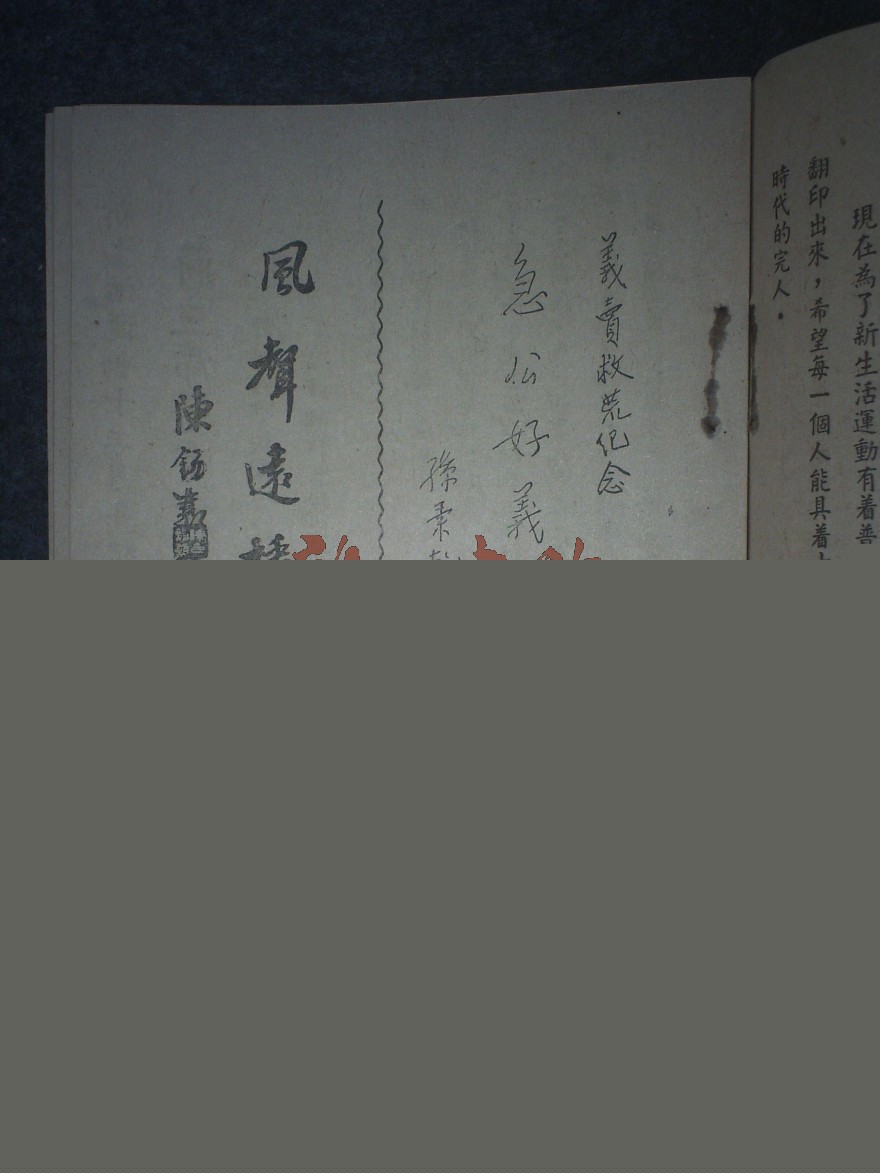 現在為了新生活運動有着普
翻印出來，希望每一個人能具着
時代的完人。
義賣救荒紀念
急公好義
孫秉
風聲遠
陳鈞